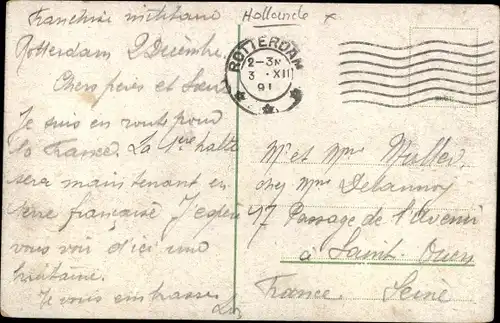 Franchise militaire
Hollande
Rotterdam 2 Décembre
Chers frères et Sœur
Je suis en route pour
la France. La 1ère halte
sera maintenant en
terre française J'espère
vous voir d'ici une
huitaine.
Je vous embrasse
ROTTERDAM
2-3N
3 .XII
91
Mr et Mme Muller
chez Mme Delannoy
17 Passage de l'Avenir
à Saint-Ouen
France. Seine